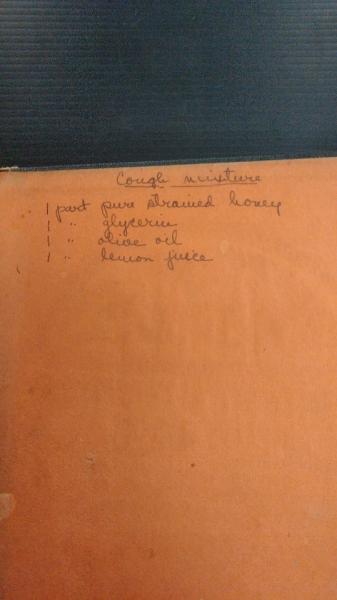 Cough mixture
1 part pure strained honey
1 " glycerin
1 " olive oil
1 " lemon juice